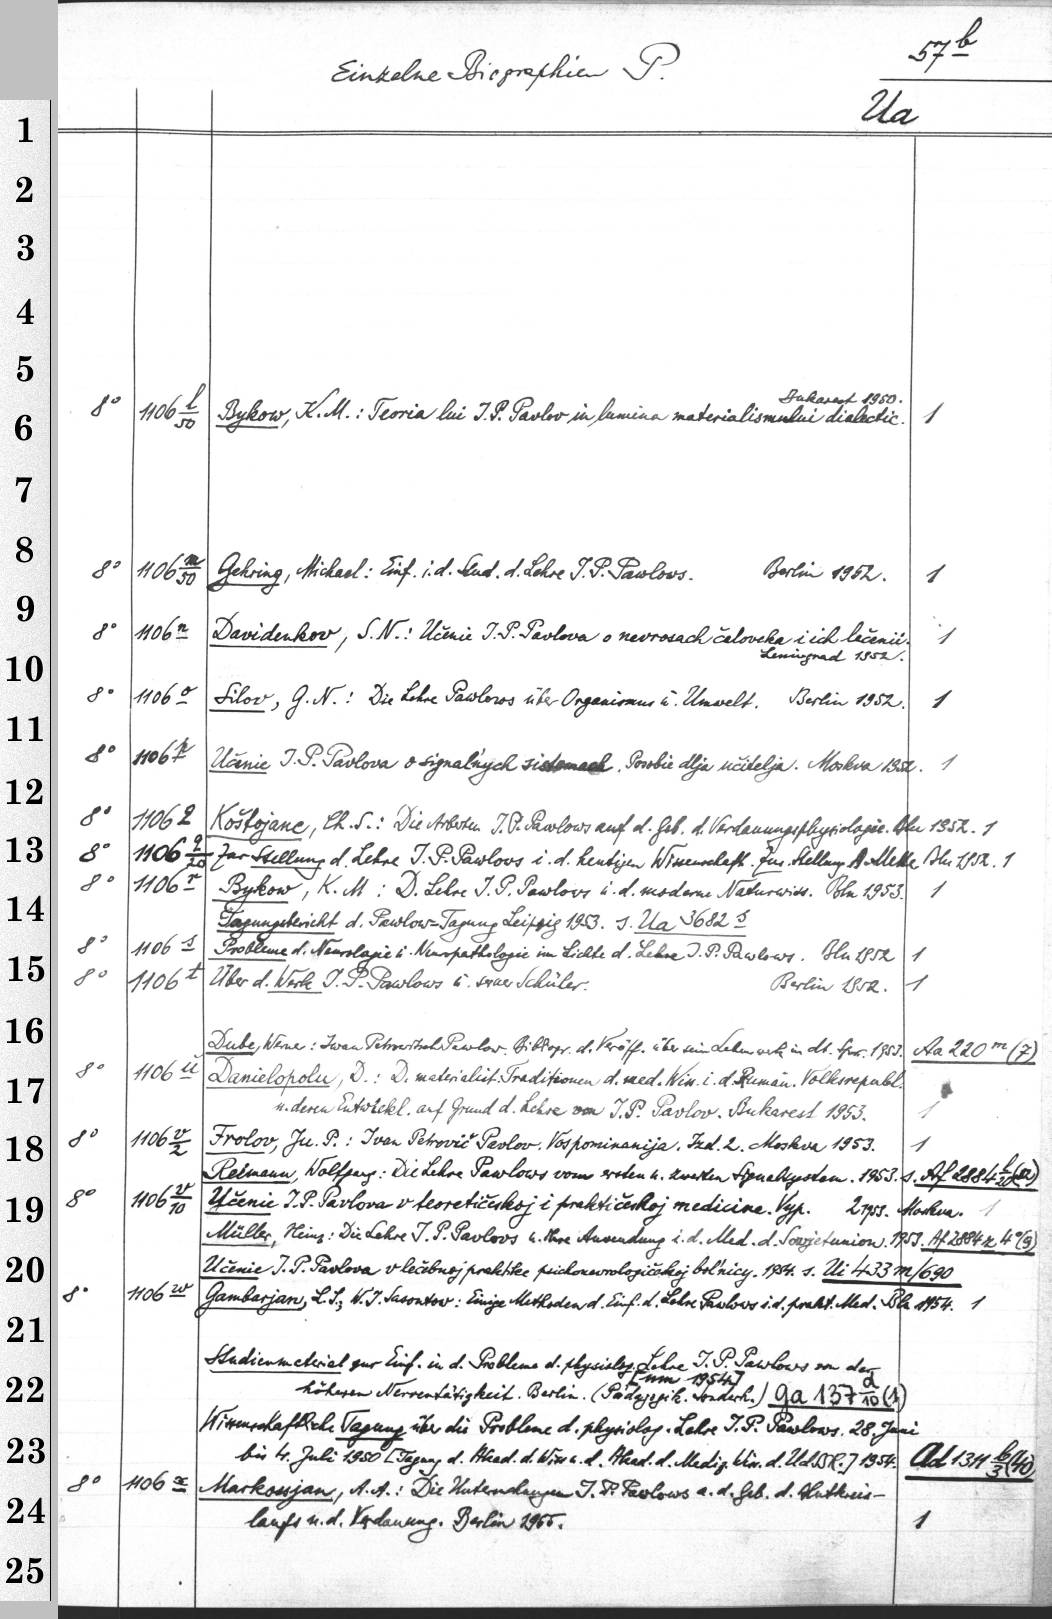 57 b
Einzelne Biographien P.
Ua
1
2
3
4
5
6
7
8
9
10
11
12
13
14
15
16
17
18
19
20
21
22
23
24
25
Bukarest 1950.
8° 1106 l/50 Bykow, K. M.: Teoria lui I. P. Pavlov in lumina materialismului dialectic. 1
8° 1106 m/50 Gehring, Michael: Einf. i. d. Stud. d. Lehre I. P. Pawlows. Berlin 1952. 1
8° 1106 n Davidenkov, S. N.: Učenie I. P. Pavlova o nevrosach čeloveka i ich lečenii. 1
Leningrad 1952.
8° 1106 o Silov, G. N.: Die Lehre Pawlows über Organismus u. Umwelt. Berlin 1952. 1
8° 1106 p Učenie I. P. Pavlova o signal'nych sistemach. Posobie dlja učitelja. Moskva 1952. 1
8° 1106 q Koštojanc, Ch. S.: Die Arbeiten I. P. Pawlows auf d. Geb. d. Verdauungsphysiologie. Bln 1952. 1
8° 1106 q/20 Zur Stellung d. Lehre I. P. Pawlows i. d. heutigen Wissenschaft. Zur Stellung A. Mette Bln 1952. 1
8° 1106 r Bykow, K. M: D. Lehre I. P. Pawlovs u. d. moderne Naturwiss. Bln 1953. 1
Tagungsbericht d. Pawlow-Tagung Leipzig 1953. s. Ua 3682 s
8° 1106 s Probleme d. Neurologie u. Neuropathologie im Lichte d. Lehre I. P. Pawlows. Bln 1952 1
8° 1106 t Über d. Werk I. P. Pawlows u. seiner Schüler. Berlin 1952. 1
Dube, Werner: Iwan Petrowitsch Pawlow. Bibliogr. d. Veröff. über sein Lebenwerk in dt. Spr. 1953. Aa 220 m (7)
8° 1106 u Danielopolu, D.: D. materialist. Traditionen d. med. Wiss. i. d. Rumän. Volksrepubl.
u. deren Entwickl. auf Grund d. Lehre von I. P. Pavlov. Bukarest 1953. 1
8° 1106 v/2 Frolov, Ju. P.: Ivan Petrovič Pavlov. Vospominanija. Izd. 2. Moskva 1953. 1
Reimann, Wolfgang: Die Lehre Pawlows vom ersten u. zweiten Signalsystem. 1953. s. Af 2884
8° 1106 v/10 Učenie I. P. Pavlova v teoretičeskoj i praktičeskoj medicine. Vyp. 2 1953. Moskva. 1
Müller, Heinz: Die Lehre I. P. Pawlows u. Ihre Anwendung i. d. Med. d. Sowjetunion. 1953. Af 2884 n 4° (9)
Učenie I. P. Pavlova v lečebnoj praktike psichonevrologičeskoj bol'nicy. 1954. s. Ui 433 m/690
8° 1106 w Gambarjan, L. S., W. I. Sasontow: Einige Methoden d. Einf. d. Lehre Pawlows i. d. prakt. Med. Bln 1954. 1
Studienmaterial zur Einf. in d. Probleme d. physiolog. Lehre I. P. Pawlows von der
[um 1954]
höheren Nerventätigkeit. Berlin. (Pädagogik. Sonderh.) Ga 137 d/10 (1)
Wissenschaftliche Tagung über die Probleme d. physiolog. Lehre I. P. Pawlows. 28. Juni
bis 4. Juli 1950 [Tagung d. Akad. d. Wiss u. d. Akad. d. Mediz. Wiss. d. UdSSR.] 1954. Ad 1311 b/3 (40)
8° 1106 x Markossjan, A. A.: Die Untersuchungen I. P. Pawlows a. d. Geb. d. Blutkreis-
laufs u. d. Verdauung. Berlin 1955. 1